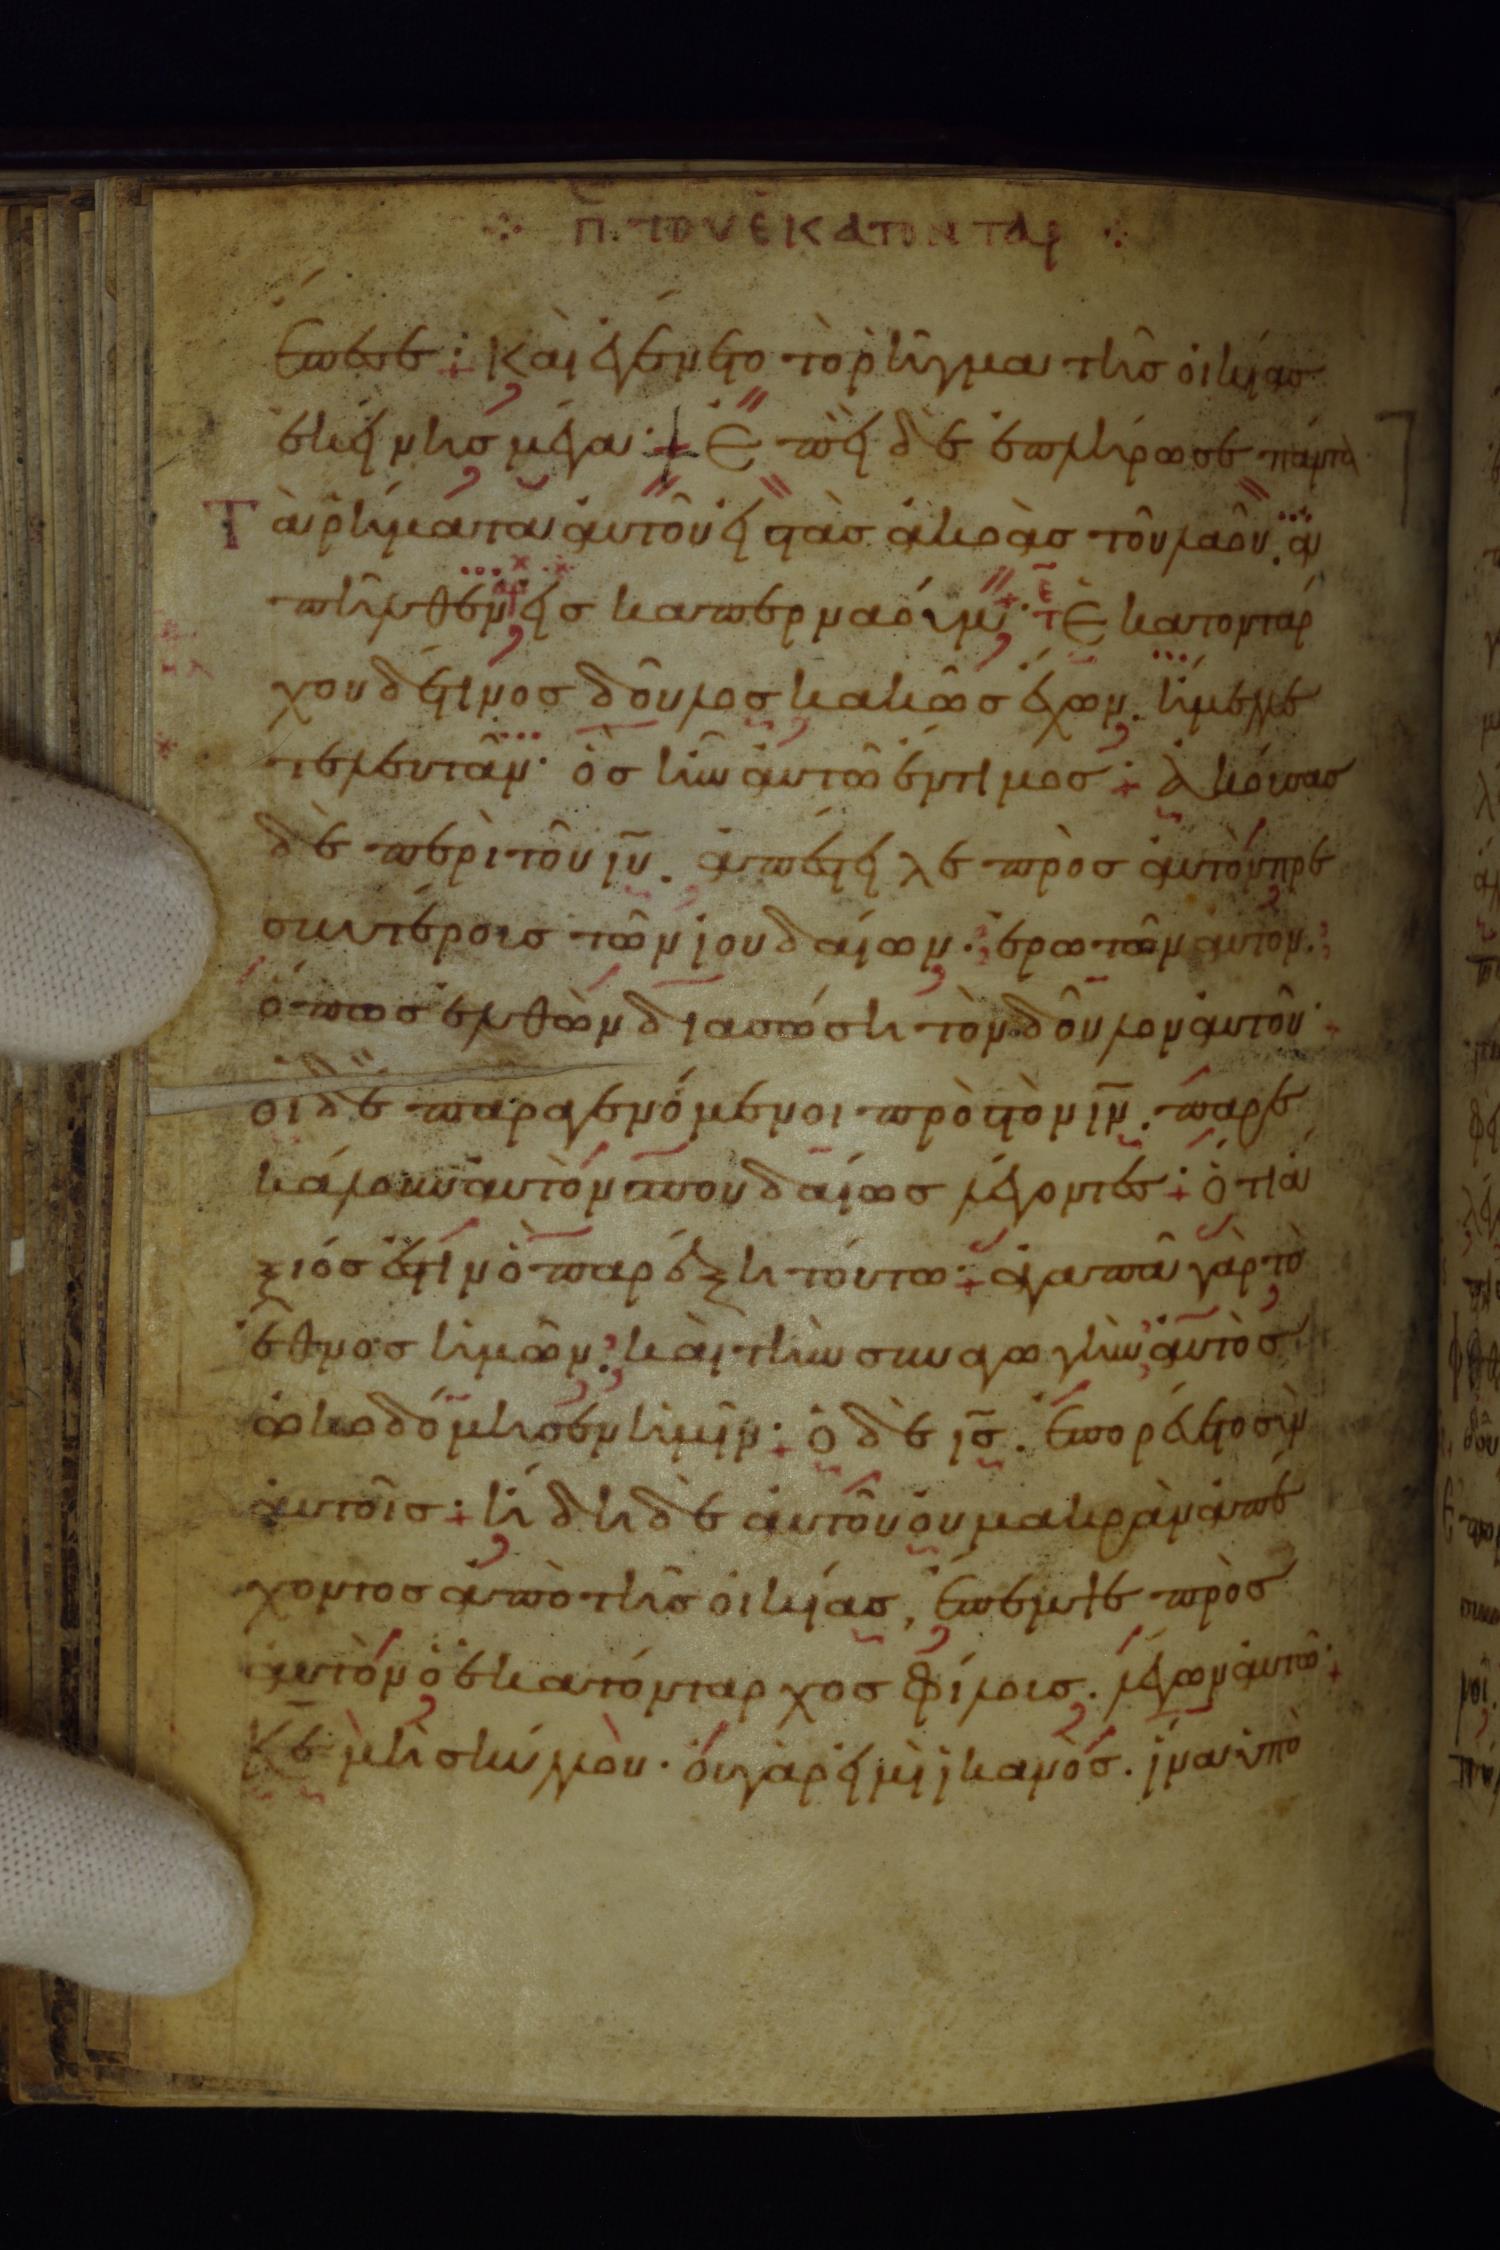 π̅. τοῦ ἑκατοντάρ
ἔπεσε· καὶ ἐγένετο τὸ ῥῆγμα τῆς οἰκίας
ἐκείνης μέγα· Ἐπεὶ δὲ ἐπλήρωσε πάντα
τὰ ῥήματα αὐτοῦ εἰς τὰς ἀκοὰς τοῦ λαοῦ. εἰ
σῆλθεν εἰς καπερναούμ· Ἑκατοντάρ
χου δέ τινος δοῦλος κακῶς ἔχων. ἤμελλε
τελευτᾶν· ὃς ἦν αὐτῶ ἔντιμος· Ἀκούσας
δὲ περὶ τοῦ ιυ̅. ἀπέστειλε πρὸς αὐτὸν πρε
σβυτέρους τῶν ἰουδαίων· ἐρωτῶν αὐτόν·
ὅπως ἐλθὼν διασώση τὸν δοῦλον αὐτοῦ·
οἱ δὲ παραγενόμενοι πρὸς τὸν ιν̅. παρε
κάλουν αὐτὸν σπουδαίως λέγοντες· ὅτι ἄ
ξιός ἐστιν ὃ παρέξη τούτω· ἀγαπᾶ γὰρ τὸ
ἔθνος ἡμῶν· καὶ τὴν συναγωγὴν αὐτὸς
ὠκοδόμησεν ἡμῖν· ὁ δὲ ις̅. ἐπορεύετο σὺν
αὐτοῖς· ἤδη δὲ αὐτοῦ οὐ μακρὰν ἀπέ
χοντος ἀπὸ τῆς οἰκίας, ἔπεμψε πρὸς
αὐτὸν ὁ ἑκατόνταρχος φίλους. λέγων αὐτῶ·
Κε̅ μὴ σκύλλου· οὐ γὰρ εἰμὶ ἱκανὸς. ἵνα ὑπὸ